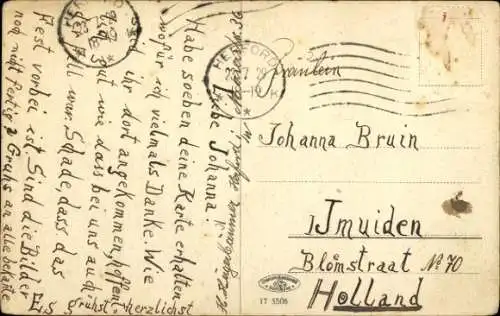 Liebe Johanna.
Habe soeben deine Karte erhalten
wofür ich vielmals Danke. Wie
ihr dort angekommen, hoffent
gut wie das bei uns auch
der Fall war. Schade, dass das
Fest vorbei ist. Sind die Bilder
noch nicht fertig? Gruhs an alle
Es grühst herzlichst
HERFORD
Fräulein
HERFORD
Johanna Bruin
IJmuiden
Blomstraat No 70
Holland
17 5506